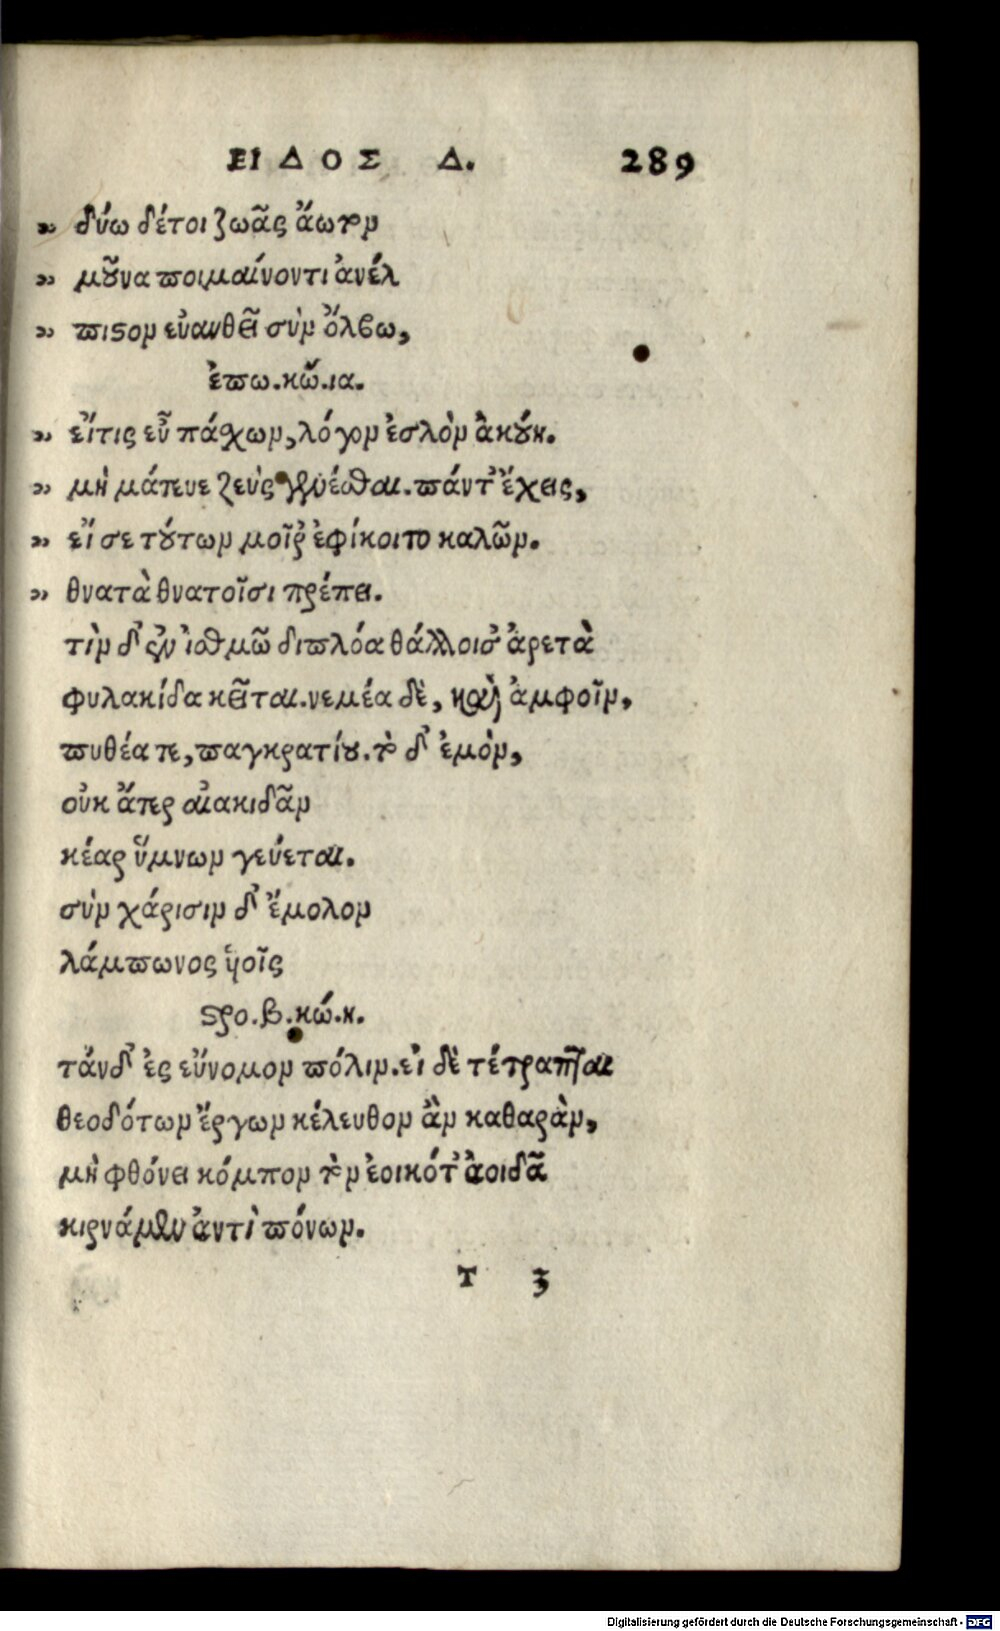 ΕΙΔΟΣ Δ. 289
„ δύω δέτοι ζωᾶς ἄωτον
„ μοῦνα ποιμαίνοντι ἀνέλ
„ πιστον εὐανθεῖ σὺν ὄλβῳ,
ἐπω. κώ. ια.
„ εἴτις εὖ πάσχων, λόγον ἐσλὸν ἀκούῃ.
„ μὴ μάτευε ζεὺς γενέσθαι. πάντ' ἔχεις,
„ εἴ σε τούτων μοῖρ' ἐφίκοιτο καλῶν.
„ θνατὰ θνατοῖσι πρέπει.
τὶν δ' ἐν ἰσθμῶ διπλόα θάλλοισ' ἀρετὰ
φυλακίδα κεῖται. νεμέα δὲ, καὶ ἀμφοῖν,
πυθέα τε, παγκρατίου. τὸ δ' ἐμὸν,
οὐκ ἄπερ αἰακιδᾶν
κέαρ ὕμνων γεύεται.
σὺν χάρισιν δ' ἔμολον
λάμπωνος ὑοῖς
στρο. β. κώ. κ.
τάνδ' ἐς εὔνομον πόλιν. εἰ δὲ τέτραπται
θεοδότων ἔργων κέλευθον ἂν καθαρὰν,
μὴ φθόνει κόμπον τὸν ἐοικότ' ἀοιδᾶ
κιρνάμεν ἀντὶ πόνων.
T 3
Digitalisierung gefördert durch die Deutsche Forschungsgemeinschaft - DFG